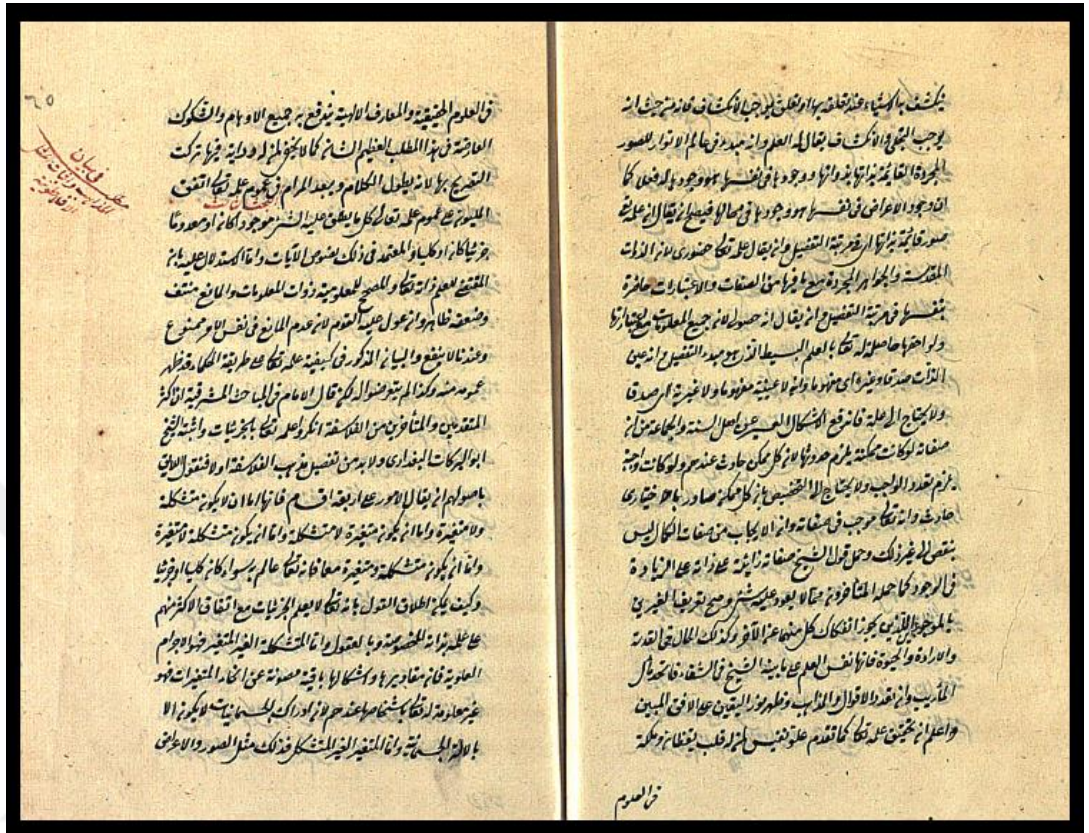 ينكشف به الاشياء عند تعلقه بها او تعلق يوجب الانكشاف فانه من حيث انه
يوجب التجلي والانكشاف يقال له العلم وانه مبدء في عالم الانوار للصور
المجردة القائمة بذاتها بذواتها ووجودها في نفسها هو وجودها لفعلها كما
ان وجود الاعراض في نفسها هو وجودها في محالها فيصح ان يقال ان علمه
صور قائمة بذاتها اي في مرتبة التفصيل وان يقال علمه تعالى حضوري لان الذات
المقدسة والجواهر المجردة مع ما فيها من الصفات والاعتبارات حاضرة
بنفسها في مرتبة التفصيل وان يقال انه حصولي لان جميع المعلومات مع اعتباراتها
ولواحقها حاصلة له تعالى بالعلم البسيط الذي هو مبدء التفصيل وانه عين
الذات صدقا وغيره اي مفهوما وانه لا عينية مفهوما ولا غيرية اي صدقا
ولا يحتاج الى علة فاندفع الاشكال العسير عن اهل السنة والجماعة من ان
صفاته لو كانت ممكنة يلزم حدوثها لان كل ممكن حادث عندهم ولو كانت واجبة
يلزم تعدد الواجب ولا يحتاج الى التخصيص بان كل ممكن صادر بالاختيار
حادث وانه تعالى موجب في صفاته وان الايجاب من صفات الكمال ليس
بنقص الى غير ذلك وحمل قول الشيخ صفاته زائدة على ذاته على الزيادة
في الوجود كما حمله المتأخرون مما لا يعود عليه شئ وصح تعريف الغيرين
بالموجودين اللذين يجوز انفكاك كل منهما عن الآخر وكذلك الحال في القدرة
والارادة والحيوة فانها نفس العلم على ما بينه الشيخ في الشفاء فاتحد المآل
المآرب وان تعدد الاقوال والمذاهب وظهر نور اليقين على الافق المبين
واعلم ان تحقيق علمه تعالى كما تقدم علق نفيس لمن له قلب يقظان وملكة
في العلوم
في العلوم الحقيقية والمعارف الالهية يندفع به جميع الاوهام والشكوك
العارضة في هذا المطلب العظيم الشان كما لا يخفى لمن له دراية فيها تركت
التصريح بها لانه يطول الكلام ويبعد المرام في عموم علمه تعالى اتفق
المليون على عموم علمه تعالى كل ما يطلق عليه الشئ موجودا كان او معدوما
جزئيا كان او كليا والمعتمد في ذلك نصوص الآيات واما الاستدلال عليه بان
المقتضي للعلم ذاته تعالى والمصحح للمعلومية ذوات المعلومات والمانع منتف
وضعفه ظاهر وان عول عليه القوم لان عدم المانع في نفس الامر ممنوع
وعندنا لا ينفع والبيان المذكور في كيفية علمه تعالى على طريقة الحكماء قد ظهر
عمومه منه وكذا لم يتعرضوا له لكن قال الامام في المباحث المشرقية ان اكثر
المتقدمين والمتأخرين من الفلاسفة انكروا علمه تعالى بالجزئيات واثبته الشيخ
ابو البركات البغدادي ولا بد من تفصيل مذهب الفلاسفة اولا فنقول اللائق
باصولهم ان يقال الامور على اربعة اقسام فانها اما ان لا يكون متشكلة
ولا متغيرة واما ان يكون متغيرة لا متشكلة واما ان يكون متشكلة لا متغيرة
واما ان يكون متشكلة ومتغيرة معا فانه تعالى عالم به سواء كان كليا او جزئيا
وكيف يمكن اطلاق القول بانه تعالى لا يعلم الجزئيات مع اتفاق الاكثر منهم
على علمه بذاته المخصوصة وبالعقول واما المتشكلة الغير المتغيرة فهو الاجرام
العلوية فان مقاديرها واشكالها باقية مصونة عن انحاء التغيرات فهو
غير معلومة له تعالى باشخاصها عندهم لان ادراك الجسمانيات لا يكون الا
بالآلة الجسمانية واما المتغير الغير المتشكل فذلك مثل الصور والاعراض
٦٥
في بيان